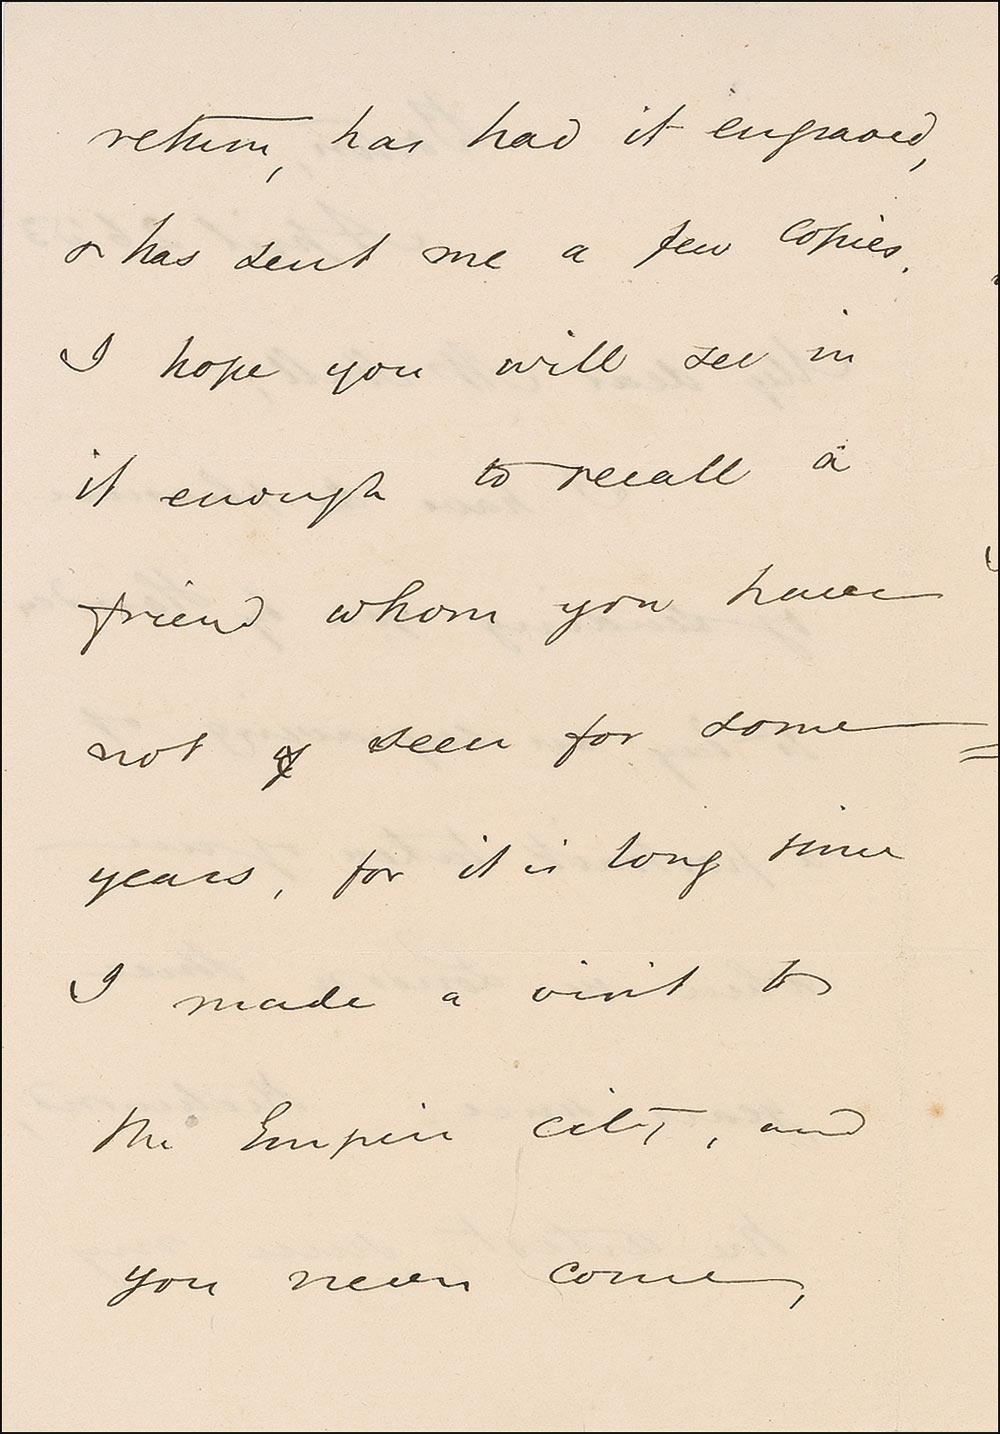 return, has had it engraved,
& has sent me a few copies.
I hope you will see in
it enough to recall a
friend whom you have
not seen for some
years, for it is long since
I made a visit to
the Empire city, and
you never come,